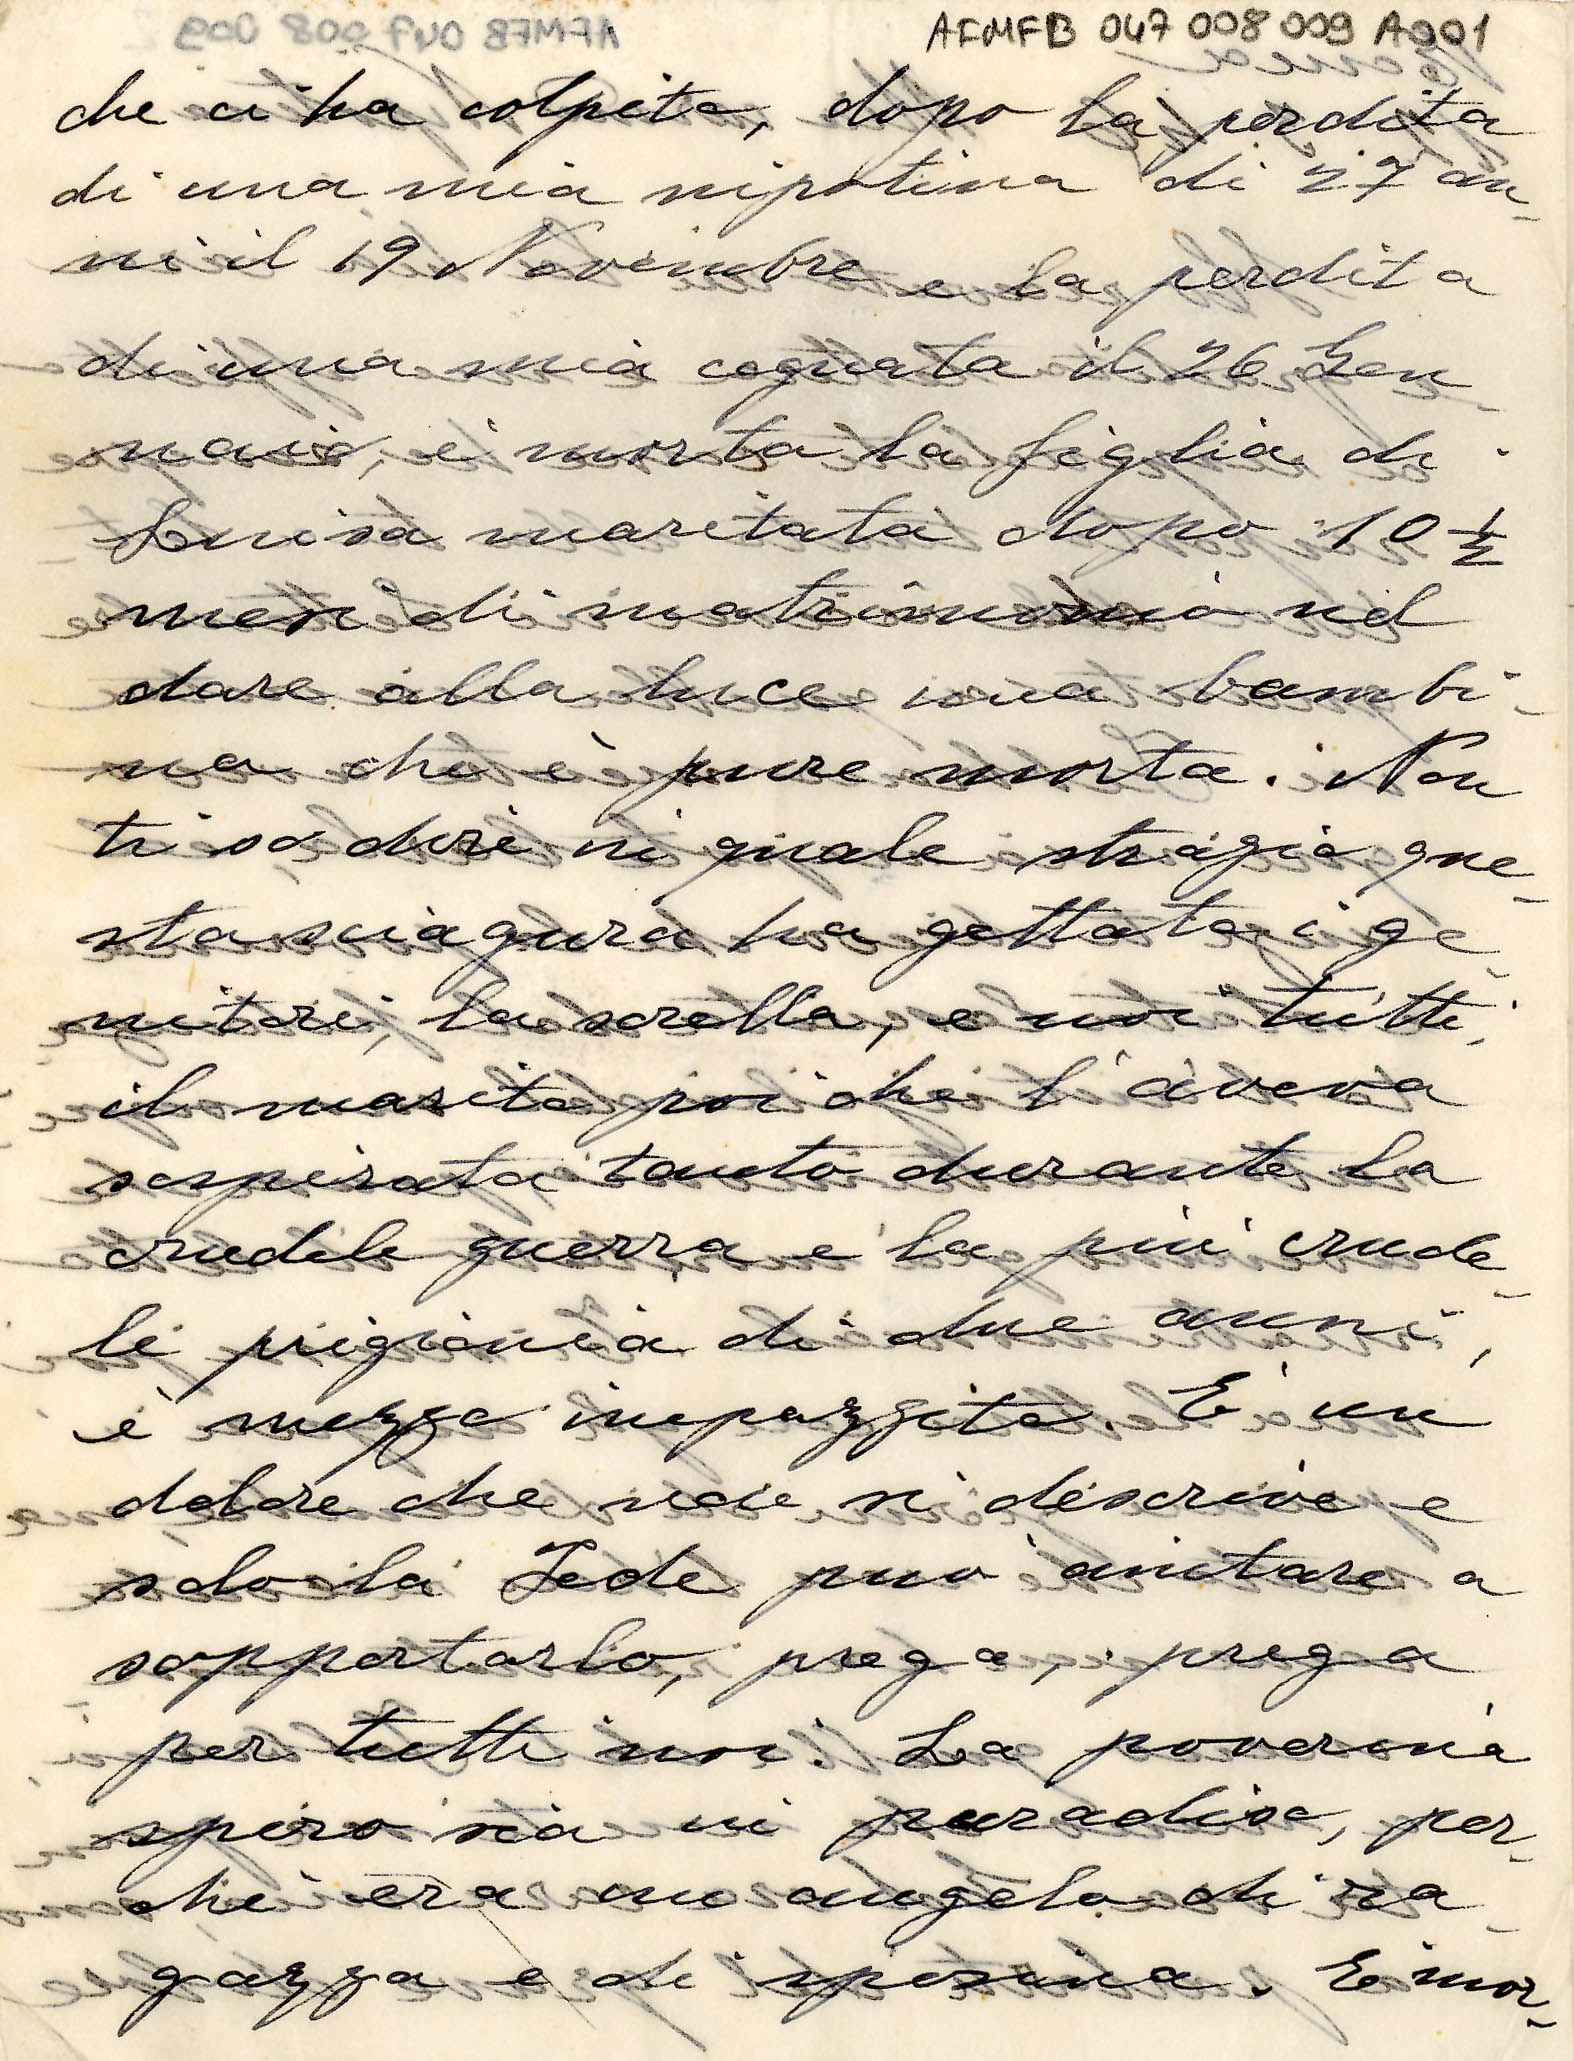 AFMFB 047 008 009 A001
che ci ha colpito, dopo la perdita
di una mia nipotina di 27 an-
ni il 19 Novembre e la perdita
di una mia cognata il 26 Gen-
naio, è morta la figlia di
Luisa maritata dopo 10 1/2
mesi di matrimonio nel
dare alla luce una bambi-
na che è pure morta. Non
ti so dire in quale strazio que-
sta sciagura ha gettato i ge-
nitori, la sorella, e noi tutti,
il marito poi che l'aveva
sospirata tanto durante la
crudele guerra e la più crude-
le prigionia di due anni,
è mezzo impazzito. E' un
dolore che non si descrive e
solo la Fede può aiutare a
sopportarlo, prega, prega
per tutti noi. La poverina
spero sia in paradiso, per-
chè era un angelo di ra-
gazza e di sposina. E' mor-